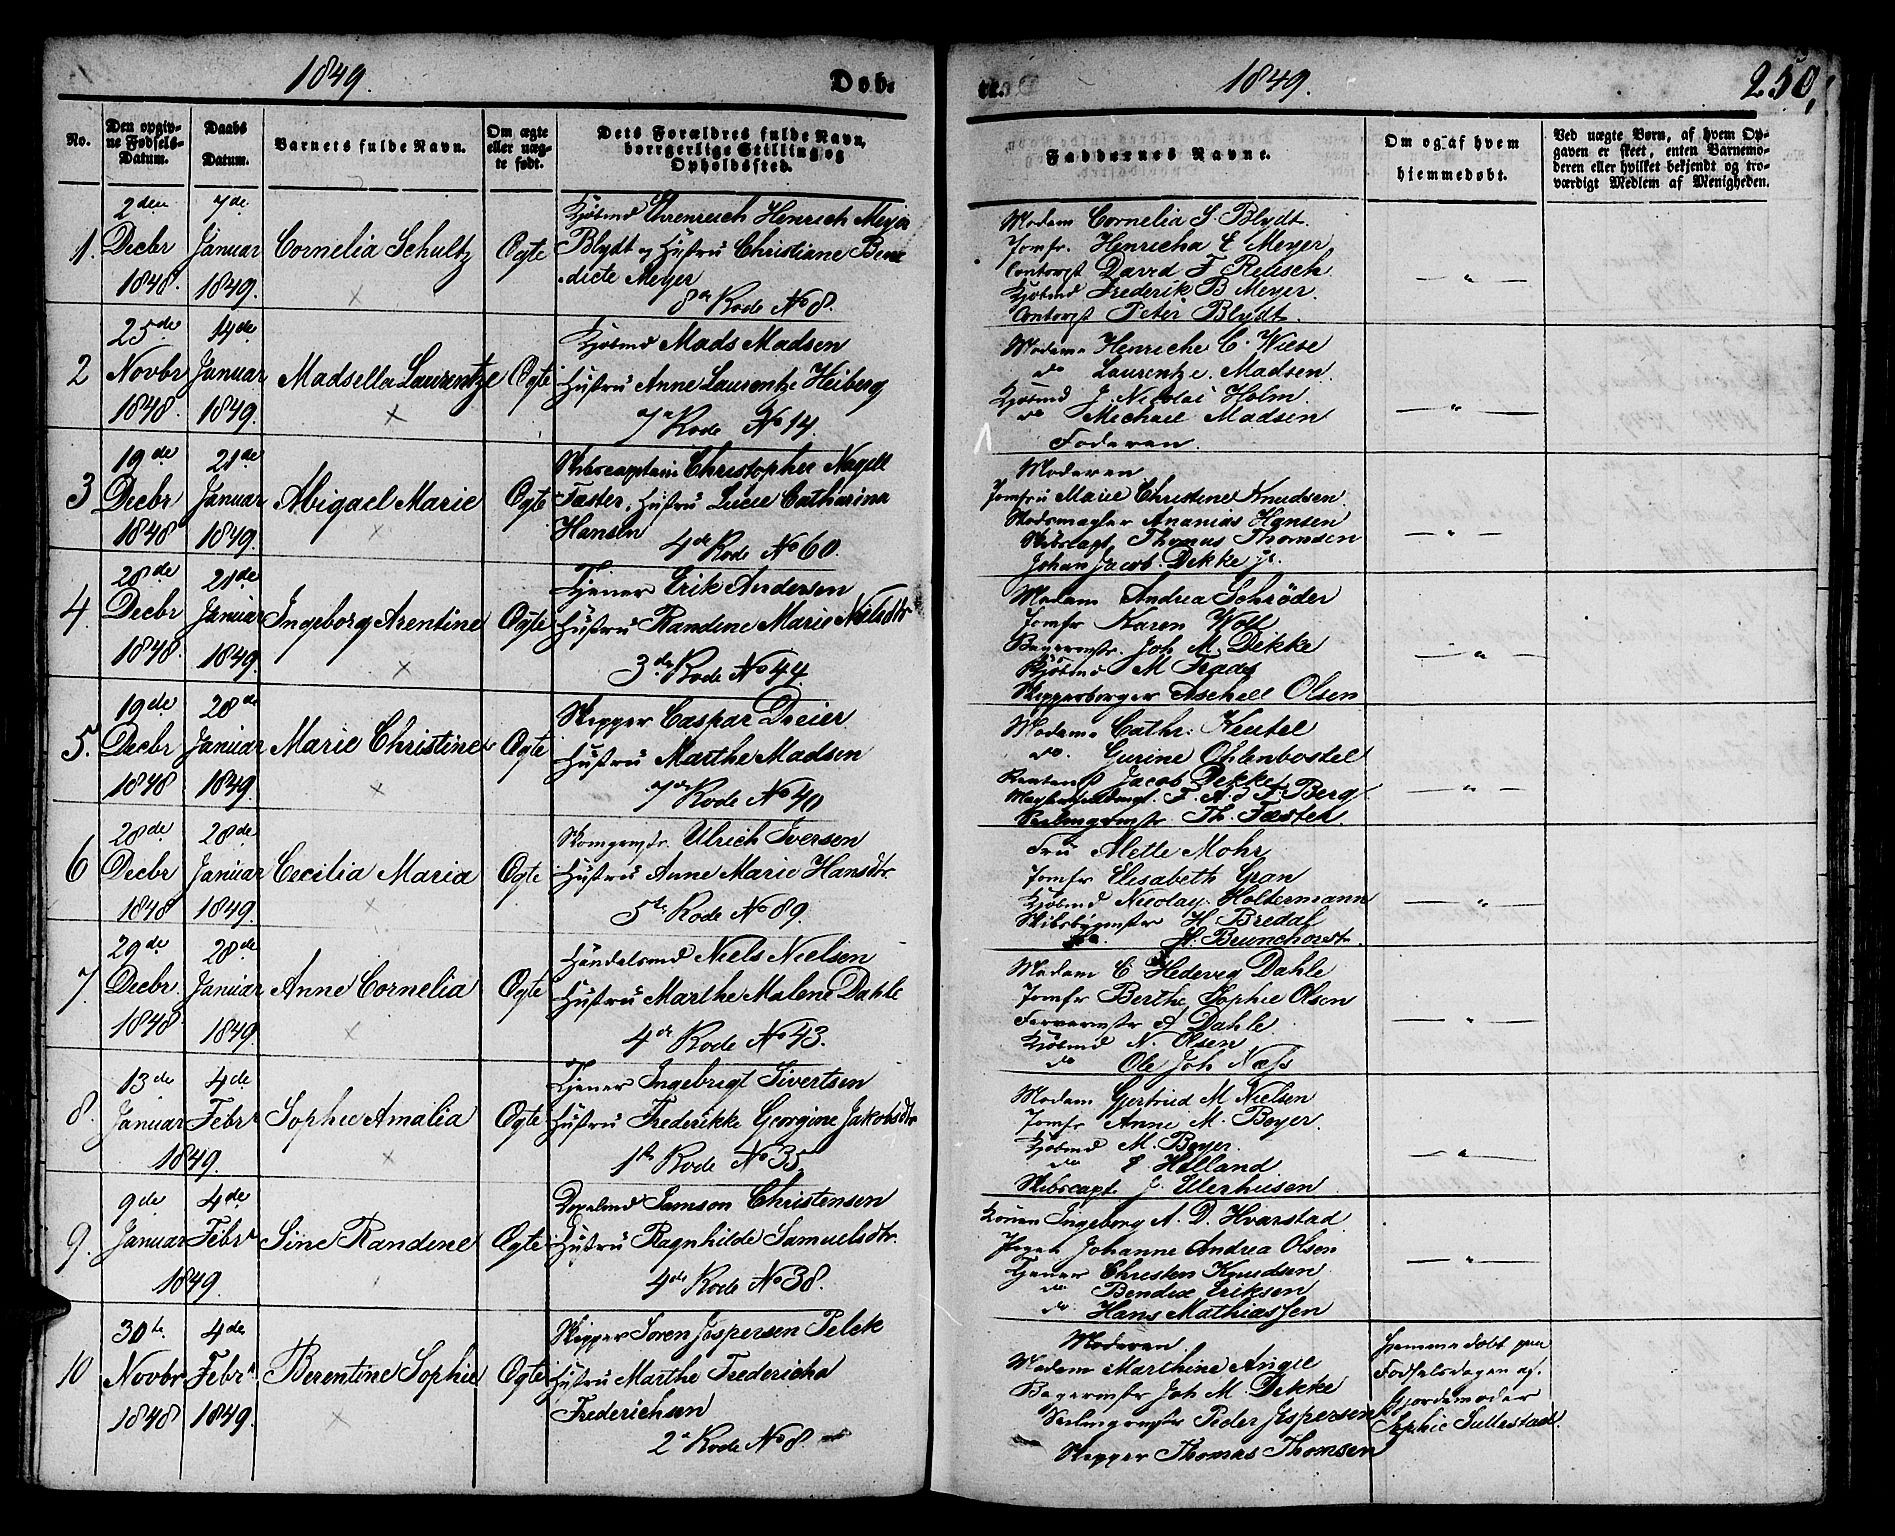 1849.
Døb-
No.
Den opgiv-
ne Fødsels-
Datum.
Daabs
Datum.
Barnets fulde Navn.
Om ægte
eller uæg-
te født.
Dets Forældres fulde Navn,
borrgerlige Stilling og
Opholdssted.
1.
2den
Decbr
1848.
7de
Januar
1849.
Cornelia Schultz
Ægte
Kjøbmd Ehrenreich Henrich Meyer
Blydt og Hustru Christiane Bene
dicte Meyer
8de Rode No 8.
2
25de
Novbr
1848.
14de
Januar
1849.
Madsella Laurentze
Ægte
Kjøbmd Mads Madsen
Hustru Anne Laurentze Heiberg
7de Rode No 14.
3
19de
Decbr
1848
21de
Januar
1849.
Abigael Marie
Ægte
Skibscaptain Christopher Nagell
Faster, Hustru Lucie Catharina
Hansen
4de Rode No 60.
4.
28de
Decbr
1848.
21de
Januar
1849.
Ingeborg Arentine
Ægte
Tjener Erik Andersen
Hustru Randine Marie Nielsdtr
3de Rode No 44.
5.
19de
Decbr
1848
28de
Januar
1849.
Marie Christine
Ægte
Skipper Caspar Dreier
Hustru Marthe Madsen
7de Rode No 40
6
28de
Decbr
1848
28de
Januar
1849.
Cecilia Maria
Ægte
Ulrich Iversen
Hustru Anne Marie Hansdtr
5te Rode No 89.
7.
29de
Decbr
1848.
28de
Januar
1849.
Anne Cornelia
Ægte
Handelsmd Niels Nielsen
Hustru Marthe Malene Dahle
4de Rode No 43.
8.
13de
Januar
1849.
4de
Febr
Sophie Amalia
Ægte
Tjener Ingebrigt Sivertsen
Hustru Frederikke Georgine Jakobsdtr
1ste Rode No 35
9.
9de
Januar
1849.
4de
Febr
Sine Randine
Ægte
Samson Christensen
Hustru Ragnhilde Samuelsdtr.
4de Rode No 38.
10
30te
Novbr
1848
4de
Febr
1849.
Berentine Sophie
Ægte
Skipper Søren Jespersen Pelek
Hustru Marthe Fredericha
Frederichsen
2de Rode No 8.
1849.
250,
te.
Faddernes Navne.
Om og af hvem
hjemmedøbt.
Ved uægte Børn, af hvem Op-
gaven er skeet, enten Barnemo-
deren eller hvilket bekjendt og tro-
værdigt Medlem af Menigheden.
Madam Cornelia S. Blydt.
Jomfr. Henricha E Meyer
Contorist David F. Reusch
Kjøbmd Frederik B Meyer.
Contorist Peter Blydt.
— " —
Madame Henriche C. Wiese
do Laurentze. Madsen.
Kjøbmd J. Nicolai Holm.
do Michael Madsen
Faderen.
— " —
Moderen
Jomfru Marie Christine Knudsen
Ananias Hansen
Skibscapt. Thomas Thomsen
Johan Jacob. Dekke jr.
— " —
Madam Andrea Schrøder
Jomfr Karen Woll
Bagermstr. Joh M. Dekke
Kjøbmd M Traae
Skipperborger Aschell Olsen
— " —
Madame Cathr. Keutel
do. Gurine Ohlenbostel
Jacob Dekke
F. A. d F. Berg
Seilmagermstr Th. Faster.
— " —
Fru Alette Mohr
Jomfr Elisabeth Gran
Kjøbmd Nicolay Holtermann
Skibsbygmster H Bredal
do. H. Brunchorst.
— " —
Madam C Hedevig Dahle
Jomfr Berthe Sophie Olsen
Farvermstr A Dahle
Kjøbmd N. Olsen
do Ole Joh Næss
— " —
Madam Gertrud M Nielsen
Jomfr Anne M. Beyer.
Kjøbmd M. Beyer.
do E Holland
Skibscapt. J. Ellerhusen
— " —
Konen Ingeborg A. D. Hvarstad
Pigen Johanne Andrea Olsen
Tjener Christen Knudsen
do Bendix Eriksen
do. Hans Mathiassen
— " —
Moderen.
Madam Marthine Angel
Bagermstr Joh M. Dekke
Seilmagermstr Peder Jespersen
Skipper Thomas Thomsen
Hjemmedøbt paa
Fødselsdagen af
Gjordemoder
Sophie Tullestad.